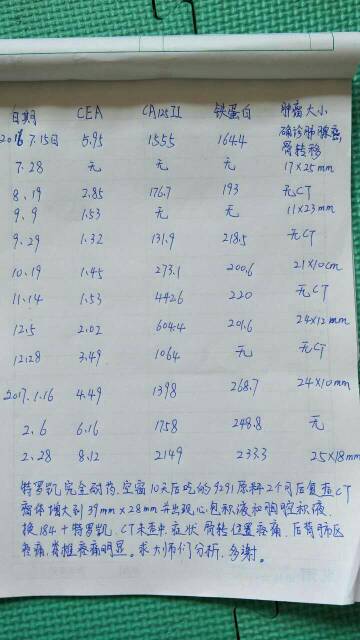 日期 CEA CA125II 铁蛋白 肿瘤大小
2016 7.15日 5.95 1555 1644 确诊肺腺癌,骨转移
7.28 无 无 无 17×25mm
8.19 2.85 176.7 193 无CT
9.9 1.53 无 无 11×23mm
9.29 1.32 131.9 218.5 无CT
10.19 1.45 273.1 200.6 21×10cm
11.14 1.53 442.6 220 无CT
12.5 2.02 604.4 201.6 24×12mm
12.28 3.49 1064 无 无CT
2017.1.16 4.49 1398 268.7 24×10mm
2.6 6.16 1758 248.8 无
2.28 8.12 2149 233.3 25×18mm
特罗凯完全耐药,空窗10天后吃的9291原料2个月后复查CT
病体增大到39mm×28mm并出现心包积液和胸腔积液.
换184+特罗凯.CT未查中,症状骨转位置疼痛.后背肺区
疼痛,脊椎疼痛明显。求大师们分析,多谢。